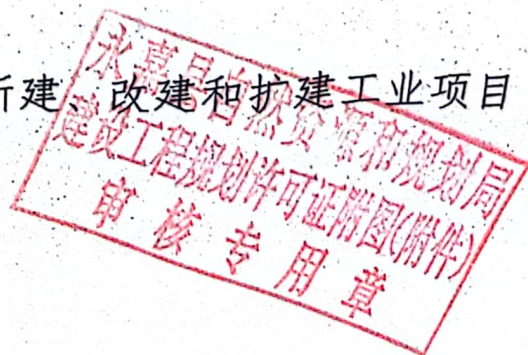 新建、改建和扩建工业项目
永嘉县自然资源和规划局
建设工程规划许可证附图(附件)
审核专用章